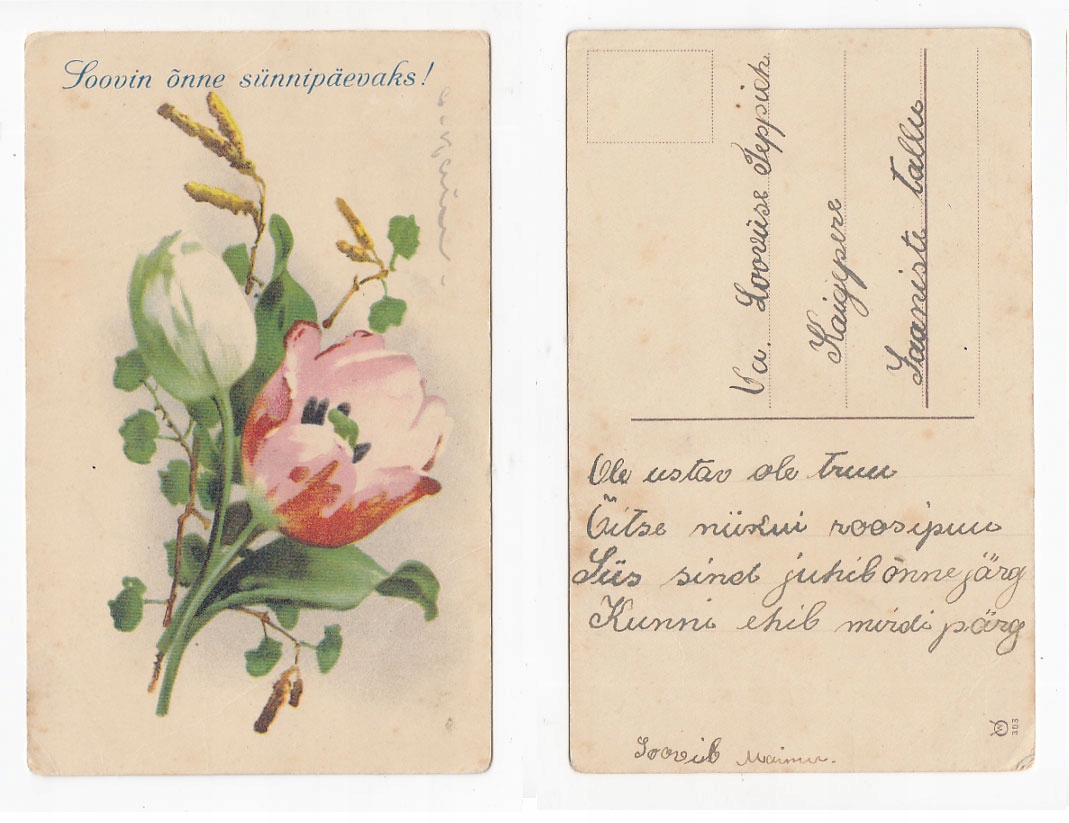 Soovin õnne sünnipäevaks!
Va. Looviise Teppich
Kaigepere
Jaaniste tallu
Ole ustav ole truu
Õitse niikui roosipuu
Siis sind juhib õnnejärg
Kunni ehib mirdi pärg
Soovib Maimu.
303